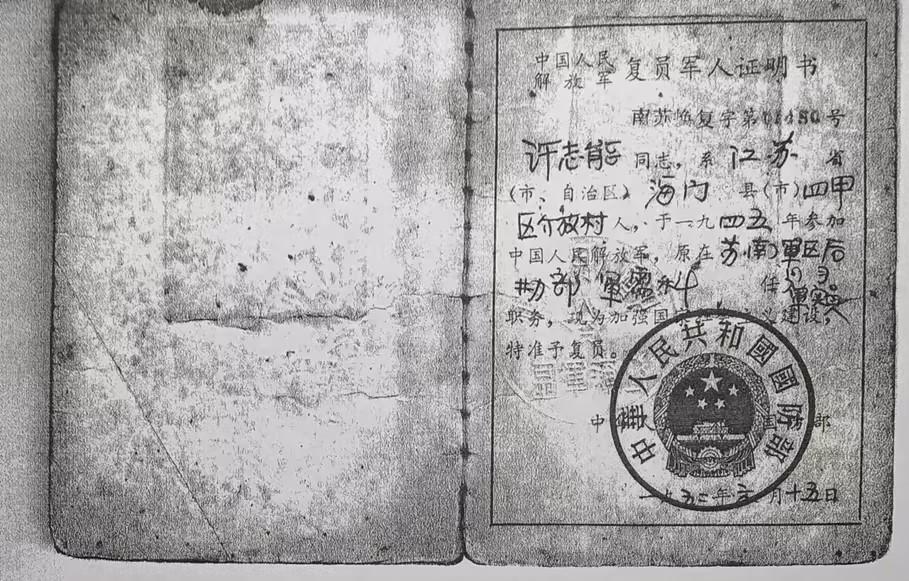 中国人民
解放军 复员军人证明书
南苏恢复字第 号
许志能 同志，系 江苏 省
（市、自治区）海门 县（市）四甲
区 放村 人，于一九四五年参加
中国人民解放军，原在苏南軍区后
勤部 軍需科 任
职务，现为加强国 建设，
特准予复员。
中 部
中華人民共和國國防部
年 月十五日